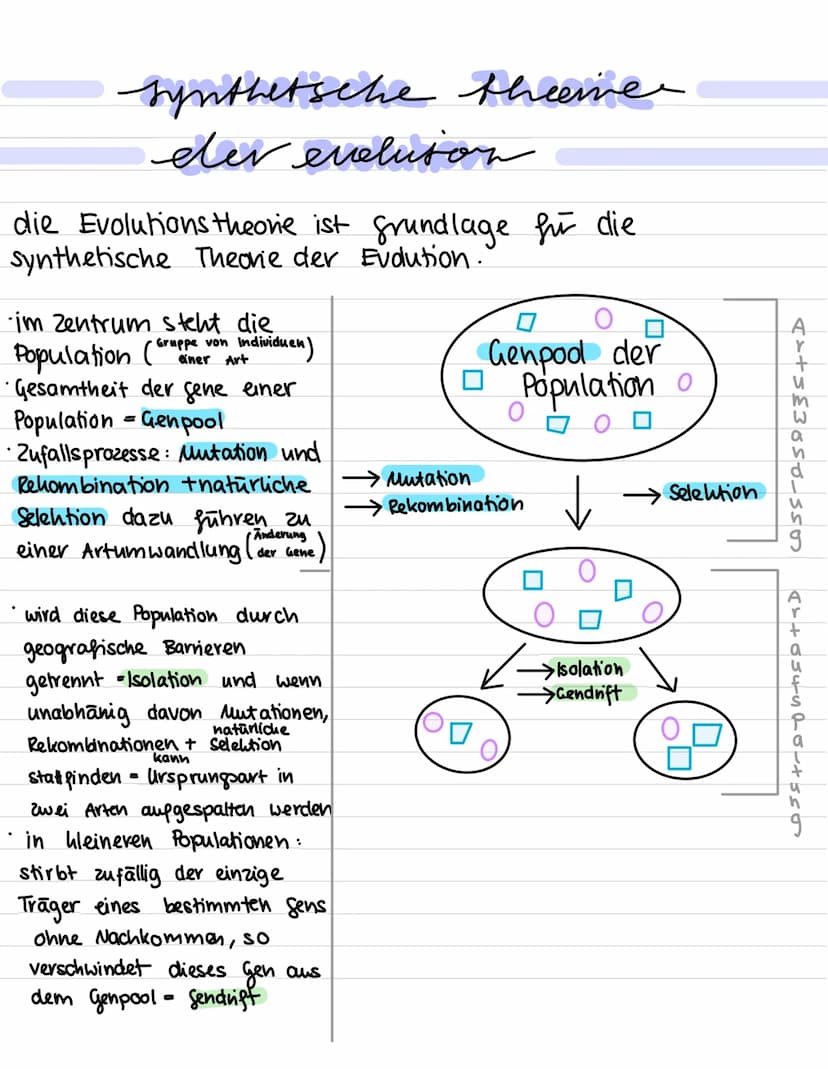 synthetische Theorie
der evolution
die Evolutionstheorie ist grundlage für die
synthetische Theorie der Evolution.
·im Zentrum steht die
Population (Gruppe von Individuen einer Art)
·Gesamtheit der gene einer
Population = Genpool
·Zufallsprozesse: Mutation und
Rekombination + natürliche
Selektion dazu führen zu
einer Artumwandlung (Änderung der Gene)
· wird diese Population durch
geografische Barrieren
getrennt = Isolation und wenn
unabhänig davon Mutationen,
Rekombinationen + natürliche Selektion
statfinden = kann Ursprungsart in
zwei Arten aufgespalten werden
· in kleineren Populationen:
stirbt zufällig der einzige
Träger eines bestimmten Gens
ohne Nachkommen, so
verschwindet dieses Gen aus
dem Genpool = Gendrift
Genpool der
Population
→ Mutation
→ Rekombination
→ Selektion
→ Isolation
→ Gendrift
Artumwandlung
Artaufspaltung